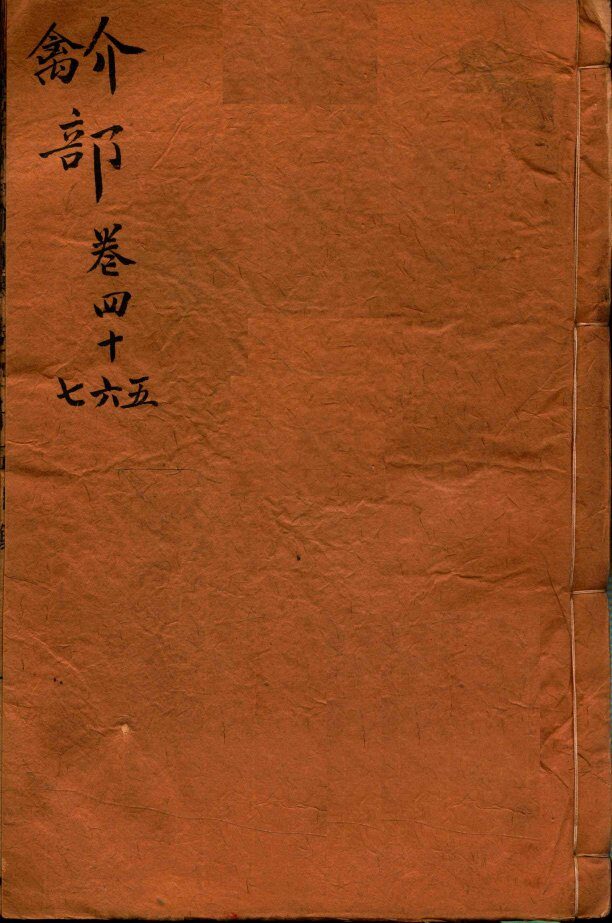 介禽
部
卷四十
五六七